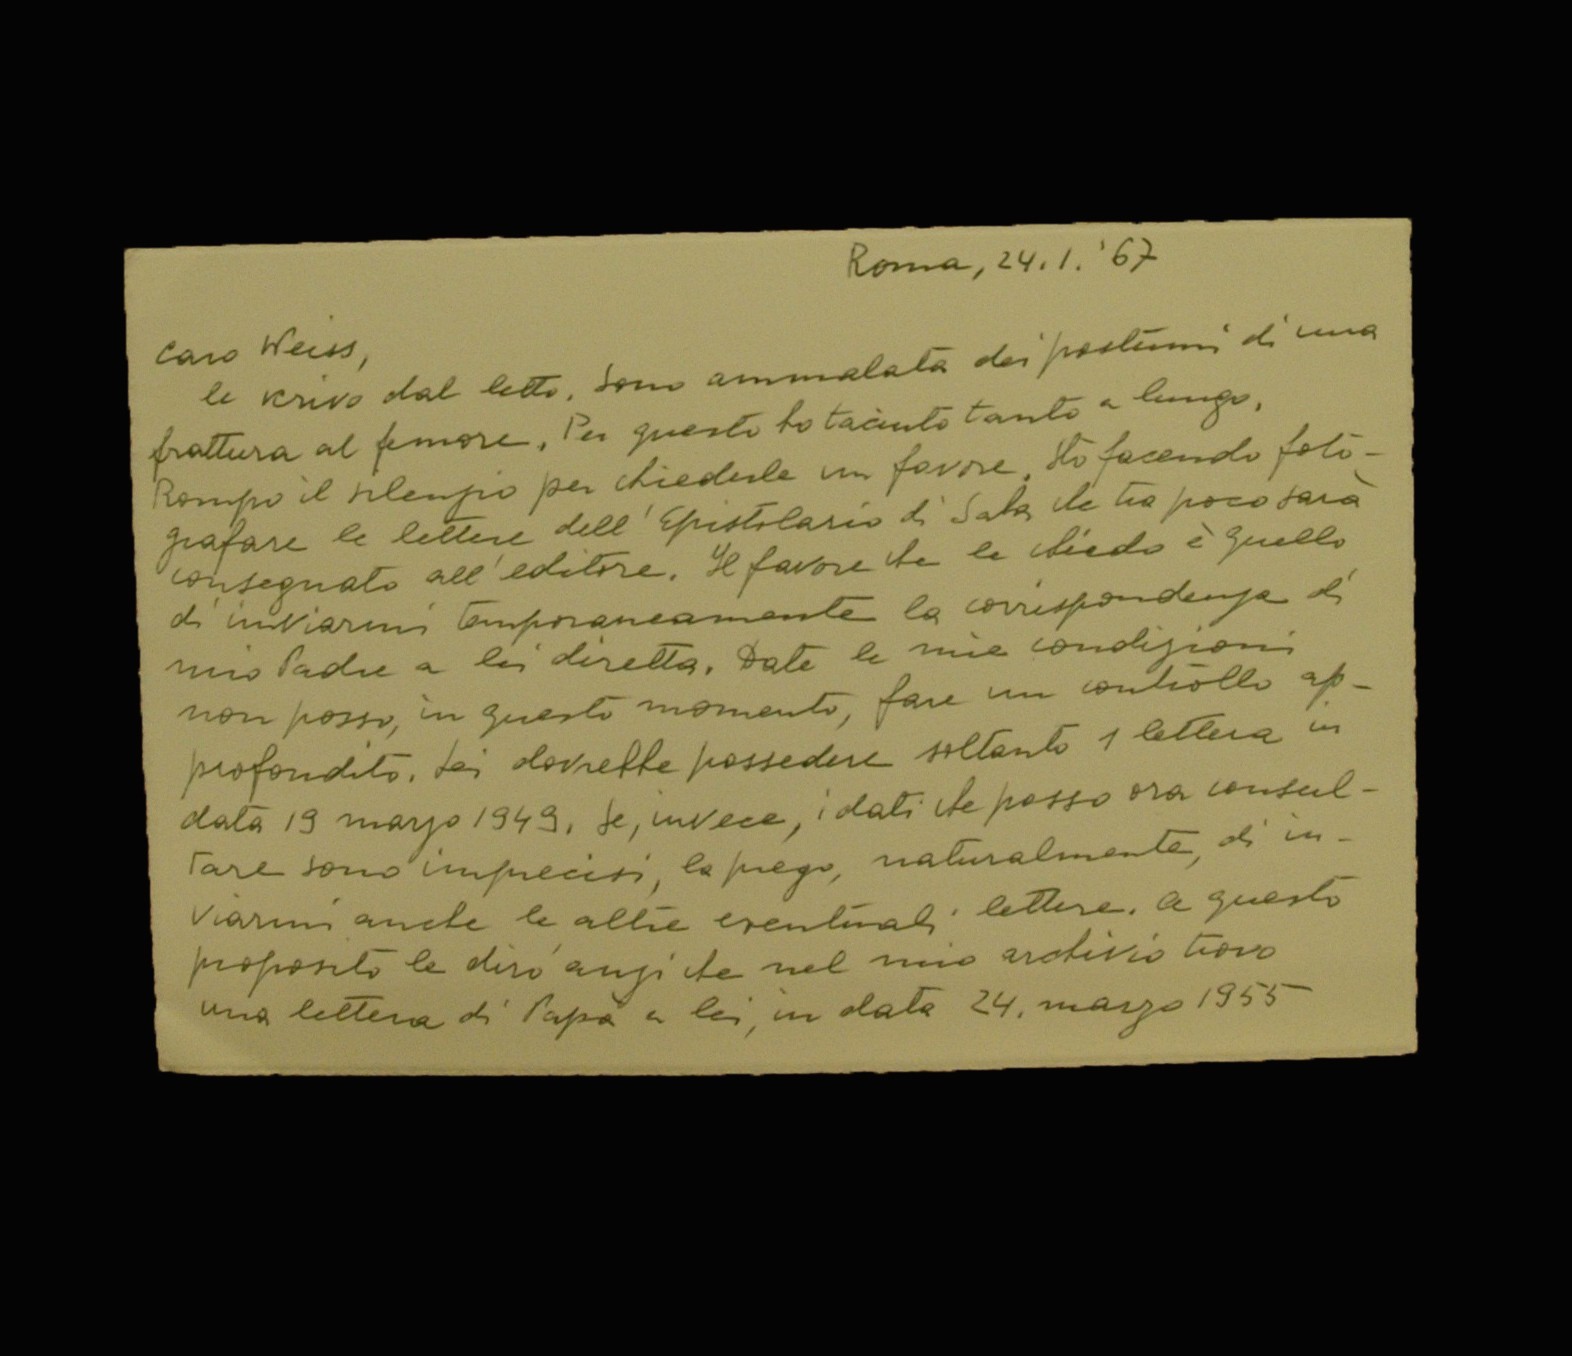 Roma, 24.1.'67
caro Weiss,
le scrivo dal letto. Sono ammalata dei postumi di una
frattura al femore. Per questo ho taciuto tanto a lungo.
Rompo il silenzio per chiederle un favore. Sto facendo foto-
grafare le lettere dell'Epistolario di Saba che tra poco sarà
consegnato all'editore. Il favore che le chiedo è quello
di inviarmi temporaneamente la corrispondenza di
mio Padre a lei diretta. Date le mie condizioni
non posso, in questo momento, fare un controllo ap-
profondito. Lei dovrebbe possedere soltanto 1 lettera in
data 19 marzo 1949. Se, invece, i dati che posso ora consul-
tare sono imprecisi, la prego, naturalmente, di in-
viarmi anche le altre eventuali lettere. A questo
proposito le dirò anzi che nel mio archivio trovo
una lettera di Papà a lei, in data 24. marzo 1955